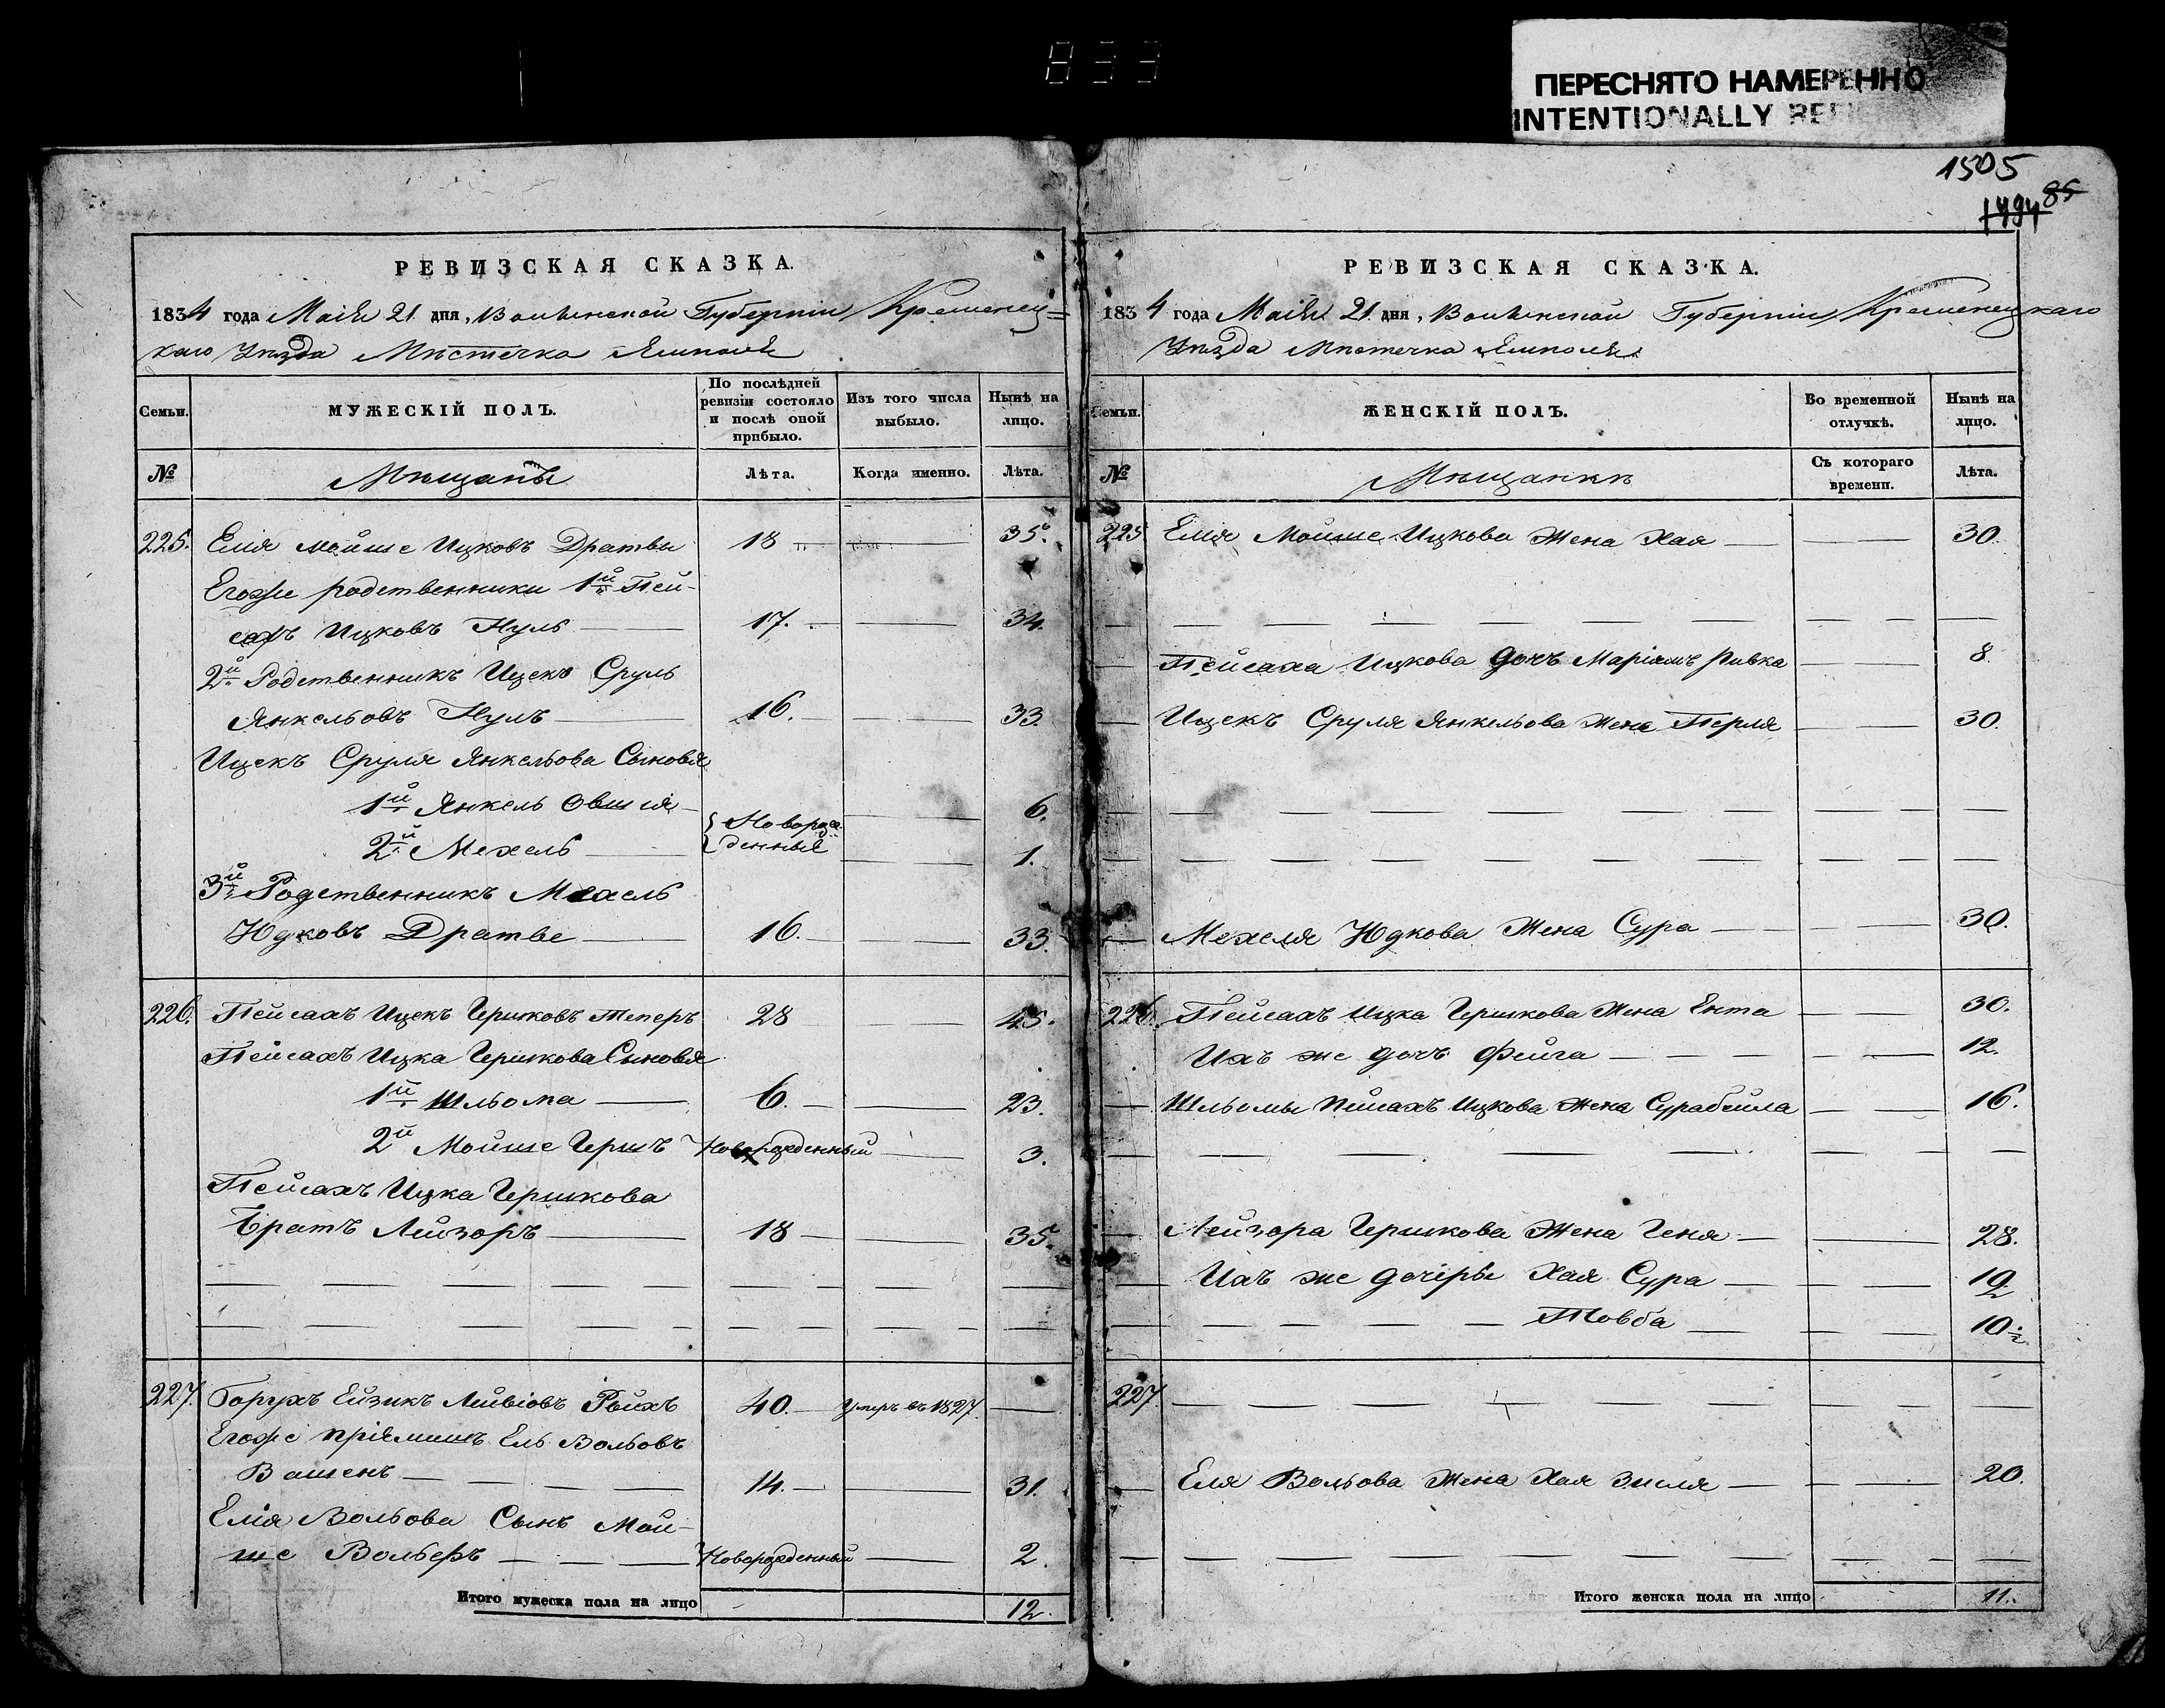 833
ПЕРЕСНЯТО НАМЕРЕННО
INTENTIONALLY
1505
1494 85
РЕВИЗСКАЯ СКАЗКА.
1834 года Маія 21 дня, Волынской Губерніи Кременец=
каго Уѣзда Мѣстечка Ямполя
Семьи.
МУЖЕСКІЙ ПОЛЪ.
По послѣдней ревизіи состояло и послѣ оной прибыло.
Изъ того числа выбыло.
Нынѣ на лицо.
№
Мѣщанъ
Лѣта.
Когда именно.
Лѣта.
225. Елія Мойше Ицковъ Дратвы 18 35.
Егоже родственники 1й Пей-
сахъ Ицковъ Нуль 17. 34.
2й Родственникъ Ицекъ Сруль
Янкельовъ Нуль 16. 33.
Ицекъ Сруля Янкельова Сыновья
1й Янкель Овшія 6.
Новорож-
денныя
2й Мехель 1.
3й Родственникъ Мехель
Юдковъ Дратве 16. 33.
226. Пейсахъ Ицекъ Гершковъ Теперъ 28 45.
Пейсахъ Ицка Гершкова Сыновья
1й Шльома 6. 23.
2й Мойше Гершъ Новорожденный 3.
Пейсахъ Ицка Гершкова
Братъ Лейзоръ 18 35.
227. Борухъ Ейзикъ Лейвіовъ Ройхъ 40. умеръ въ 1827
Егоже пріямишъ Ель Вольовъ
Вашенъ 14. 31.
Елія Вольова Сынъ Мой-
ше Вольфъ Новорожденный 2.
Итого мужеска пола на лицо 12.
РЕВИЗСКАЯ СКАЗКА.
1834 года Маія 21 дня, Волынской Губерніи Кременецкаго
Уѣзда Мѣстечка Ямполя
Семьи.
ЖЕНСКІЙ ПОЛЪ.
Во временной отлучкѣ.
Нынѣ на лицо.
№
Мѣщанкѣ
Съ котораго времени.
Лѣта.
225 Елія Мойше Ицкова Жена Хая 30.
Пейсаха Ицкова дочь Маріямъ Ривка 8.
Ицекъ Сруля Янкельова жена Перля 30.
Мехеля Юдкова Жена Сура 30.
226. Пейсахъ Ицка Гершкова Жена Ента 30.
Ихъ же дочь Фейга 12.
Шльомы Пейсахъ Ицкова жена Сурабейла 16.
Лейзора Гершкова Жена Геня 28.
Ихъ же дочеры Хая Сура
Товба
227
Еля Вольова Жена Хая Зисля 20.
Итого женска пола на лицо 11.